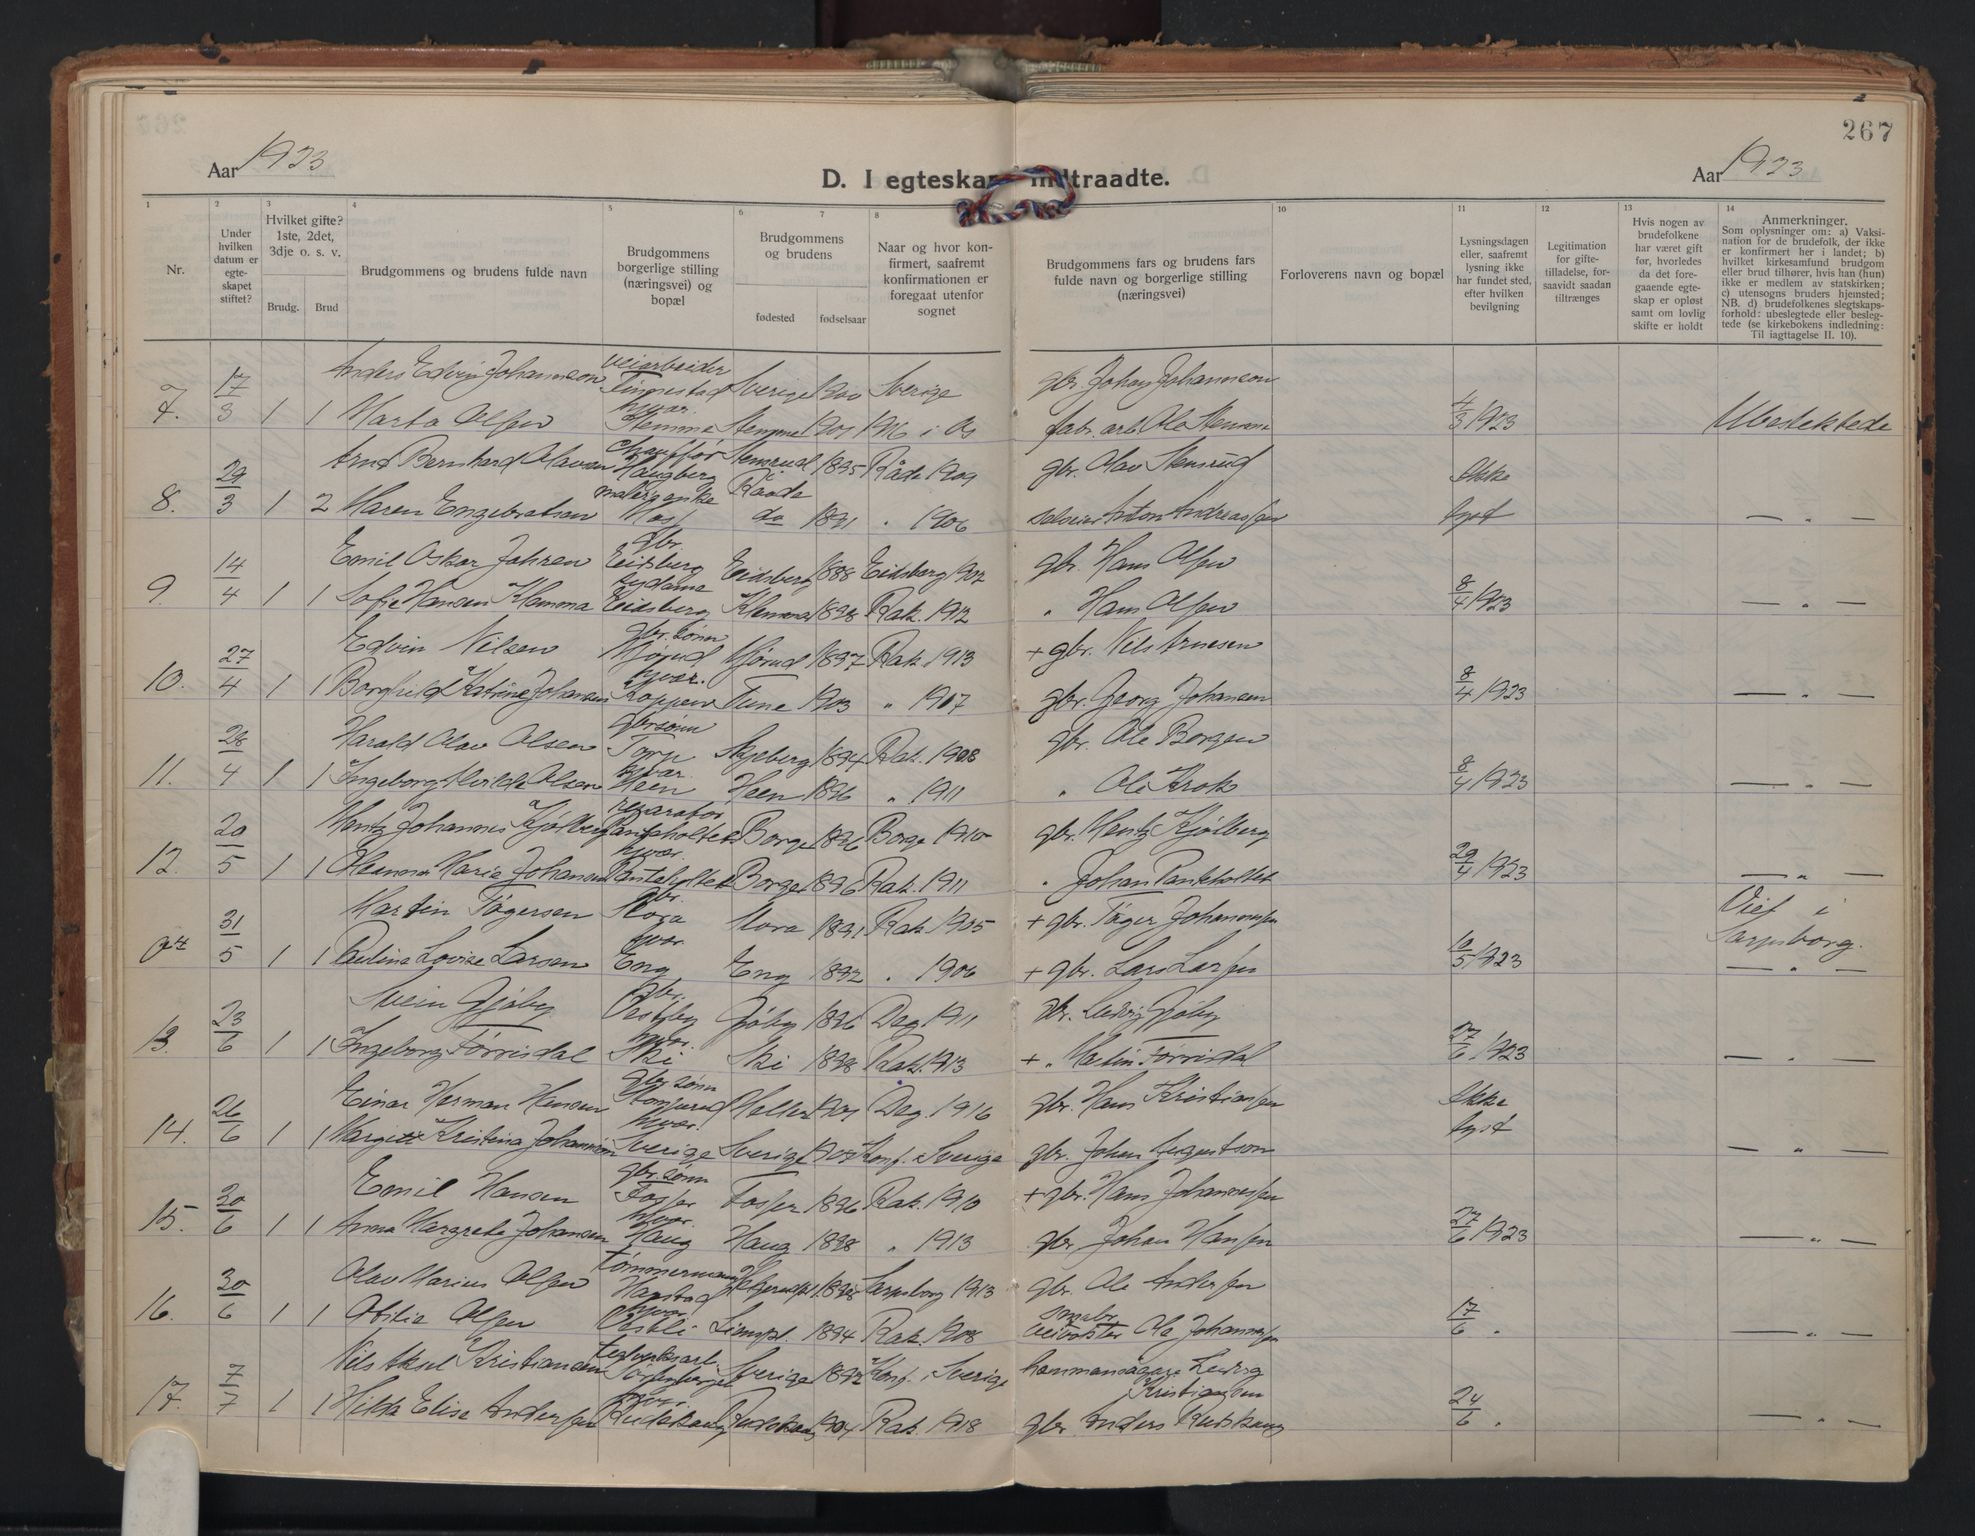 267
Aar 1923
D. I egteskap indtraadte.
Aar 1923
1 2 3 4 5 6 7 8 10 11 12 13 14
Nr.
Under hvilken datum er egteskapet stiftet?
Hvilket gifte? 1ste, 2det, 3dje o. s. v.
Brudg. Brud
Brudgommens og brudens fulde navn
Brudgommens borgerlige stilling (næringsvei) og bopæl
Brudgommens og brudens
fødested fødselsaar
Naar og hvor konfirmert, saafremt konfirmationen er foregaat utenfor sognet
Brudgommens fars og brudens fars fulde navn og borgerlige stilling (næringsvei)
Forloverens navn og bopæl
Lysningsdagen eller, saafremt lysning ikke har fundet sted, efter hvilken bevilgning
Legitimation for giftetilladelse, forsaavidt saadan tiltrænges
Hvis nogen av brudefolkene har været gift før, hvorledes da det foregaaende egteskap er opløst samt om lovlig skifte er holdt
Anmerkninger. Som oplysninger om: a) Vaksination for de brudefolk, der ikke er konfirmert her i landet; b) hvilket kirkesamfund brudgom eller brud tilhører, hvis han (hun) ikke er medlem av statskirken; c) utensogns bruders hjemsted; NB. d) brudefolkenes slegtskapsforhold: ubeslegtede eller beslegtede (se kirkebokens indledning: Til iagttagelse II. 10).
Anders Edvin Johannson veiarbeider Sverige 1900 Sverige gbr. Johan Johannson
7. 17/3 1 1 Marta Olsen hvar. Stemme Stemme 1901 1916 i Os fabr. arb. Ole Stemme 4/3 1923 Ubeslektede
Arnt Bernhard Olavsen chauffør Haugberg Stensrud 1895 Råde 1909 gbr. Olav Stensrud Ikke
8. 29/3 1 2 Maren Engebretsen Moss Raade do 1891 " 1906 Anton Andreassen lyst — " —
Emil Oskar Jahren gbr. Eidsberg Eidsberg 1888 Eidsberg 1902 gbr. Hans Olsen
9. 14/4 1 1 Sofie Hansen Klemma sydame Eidsberg Klemma 1898 Rak. 1912 " Hans Olsen 8/4 1923 — " —
Edvin Nilsen gbr. sønn Mjørud Mjørud 1897 Rak. 1913 + gbr. Nils Arnesen
10. 27/4 1 1 Borghild Katrine Johansen hvar. Koppen Tune 1903 " 1917 gbr. Georg Johansen 8/4 1923 — " —
Harald Olav Olsen gbrsønn Torp Skjeberg 1894 Rak. 1908 gbr. Ole Borgen
11. 28/4 1 1 Ingeborg Alvilde Olsen hvar. Heen Heen 1896 " 1911 " Ole Krok 8/4 1923 — " —
Mentz Johannes Kjølberg reparatør Borge 1896 Borge 1910 gbr. Mentz Kjølberg
12. 20/5 1 1 Oleanna Marie Johansen hvar. Borge 1896 Rak. 1911 " Johan 29/4 1923 — " —
Martin Tøgersen gbr. Mora Mora 1891 Rak. 1905 + gbr. Tøger Johannessen Viet i
31/5 1 1 Paulina Lovise Larsen hvar. Eng Eng 1892 " 1906 + gbr. Lars Larsen 10/5 1923 Sarpsborg. — " —
Svein Gjøby gbr. Vestby Gjøby 1896 Dag. 1911 gbr. Ludvig Gjøby
13. 23/6 1 1 Ingeborg Førrisdal hvar. Ski Ski 1898 Rak. 1913 + " Martin Førrisdal 27/6 1923 — " —
Einar Herman Hansen gbr sønn 1901 Dag. 1916 gbr. Hans Kristiansen Ikke
14. 26/6 1 1 Margit Kristina Johannson hvar. Sverige Sverige Konf. i Sverige gbr. Johan lyst — " —
Emil Hansen gbr. sønn Fosser Fosser 1896 Rak. 1910 + gbr. Hans Johannessen
15. 30/6 1 1 Anna Margrete Johansen hvar. Haug Haug 1898 " 1913 gbr. Johan Hansen 27/6 1923 — " —
Olav Marius Olsen tømmermann 1898 Sarpsborg 1913 gbr. Ole Andersen
16. 30/6 1 1 Otilie Olsen hvar. Vestli 1894 Rak. 1908 Ole Johannessen 17/6 " — " —
Nils Aksel Kristiansen Sverige 1892 Konf. i Sverige Ludvig Kristiansen
17. 7/7 1 1 Hilda Elise Andersen hvar. Rudskaug Rudskaug 1904 Rak. 1918 gbr Anders Rudskaug 24/6 " — " —